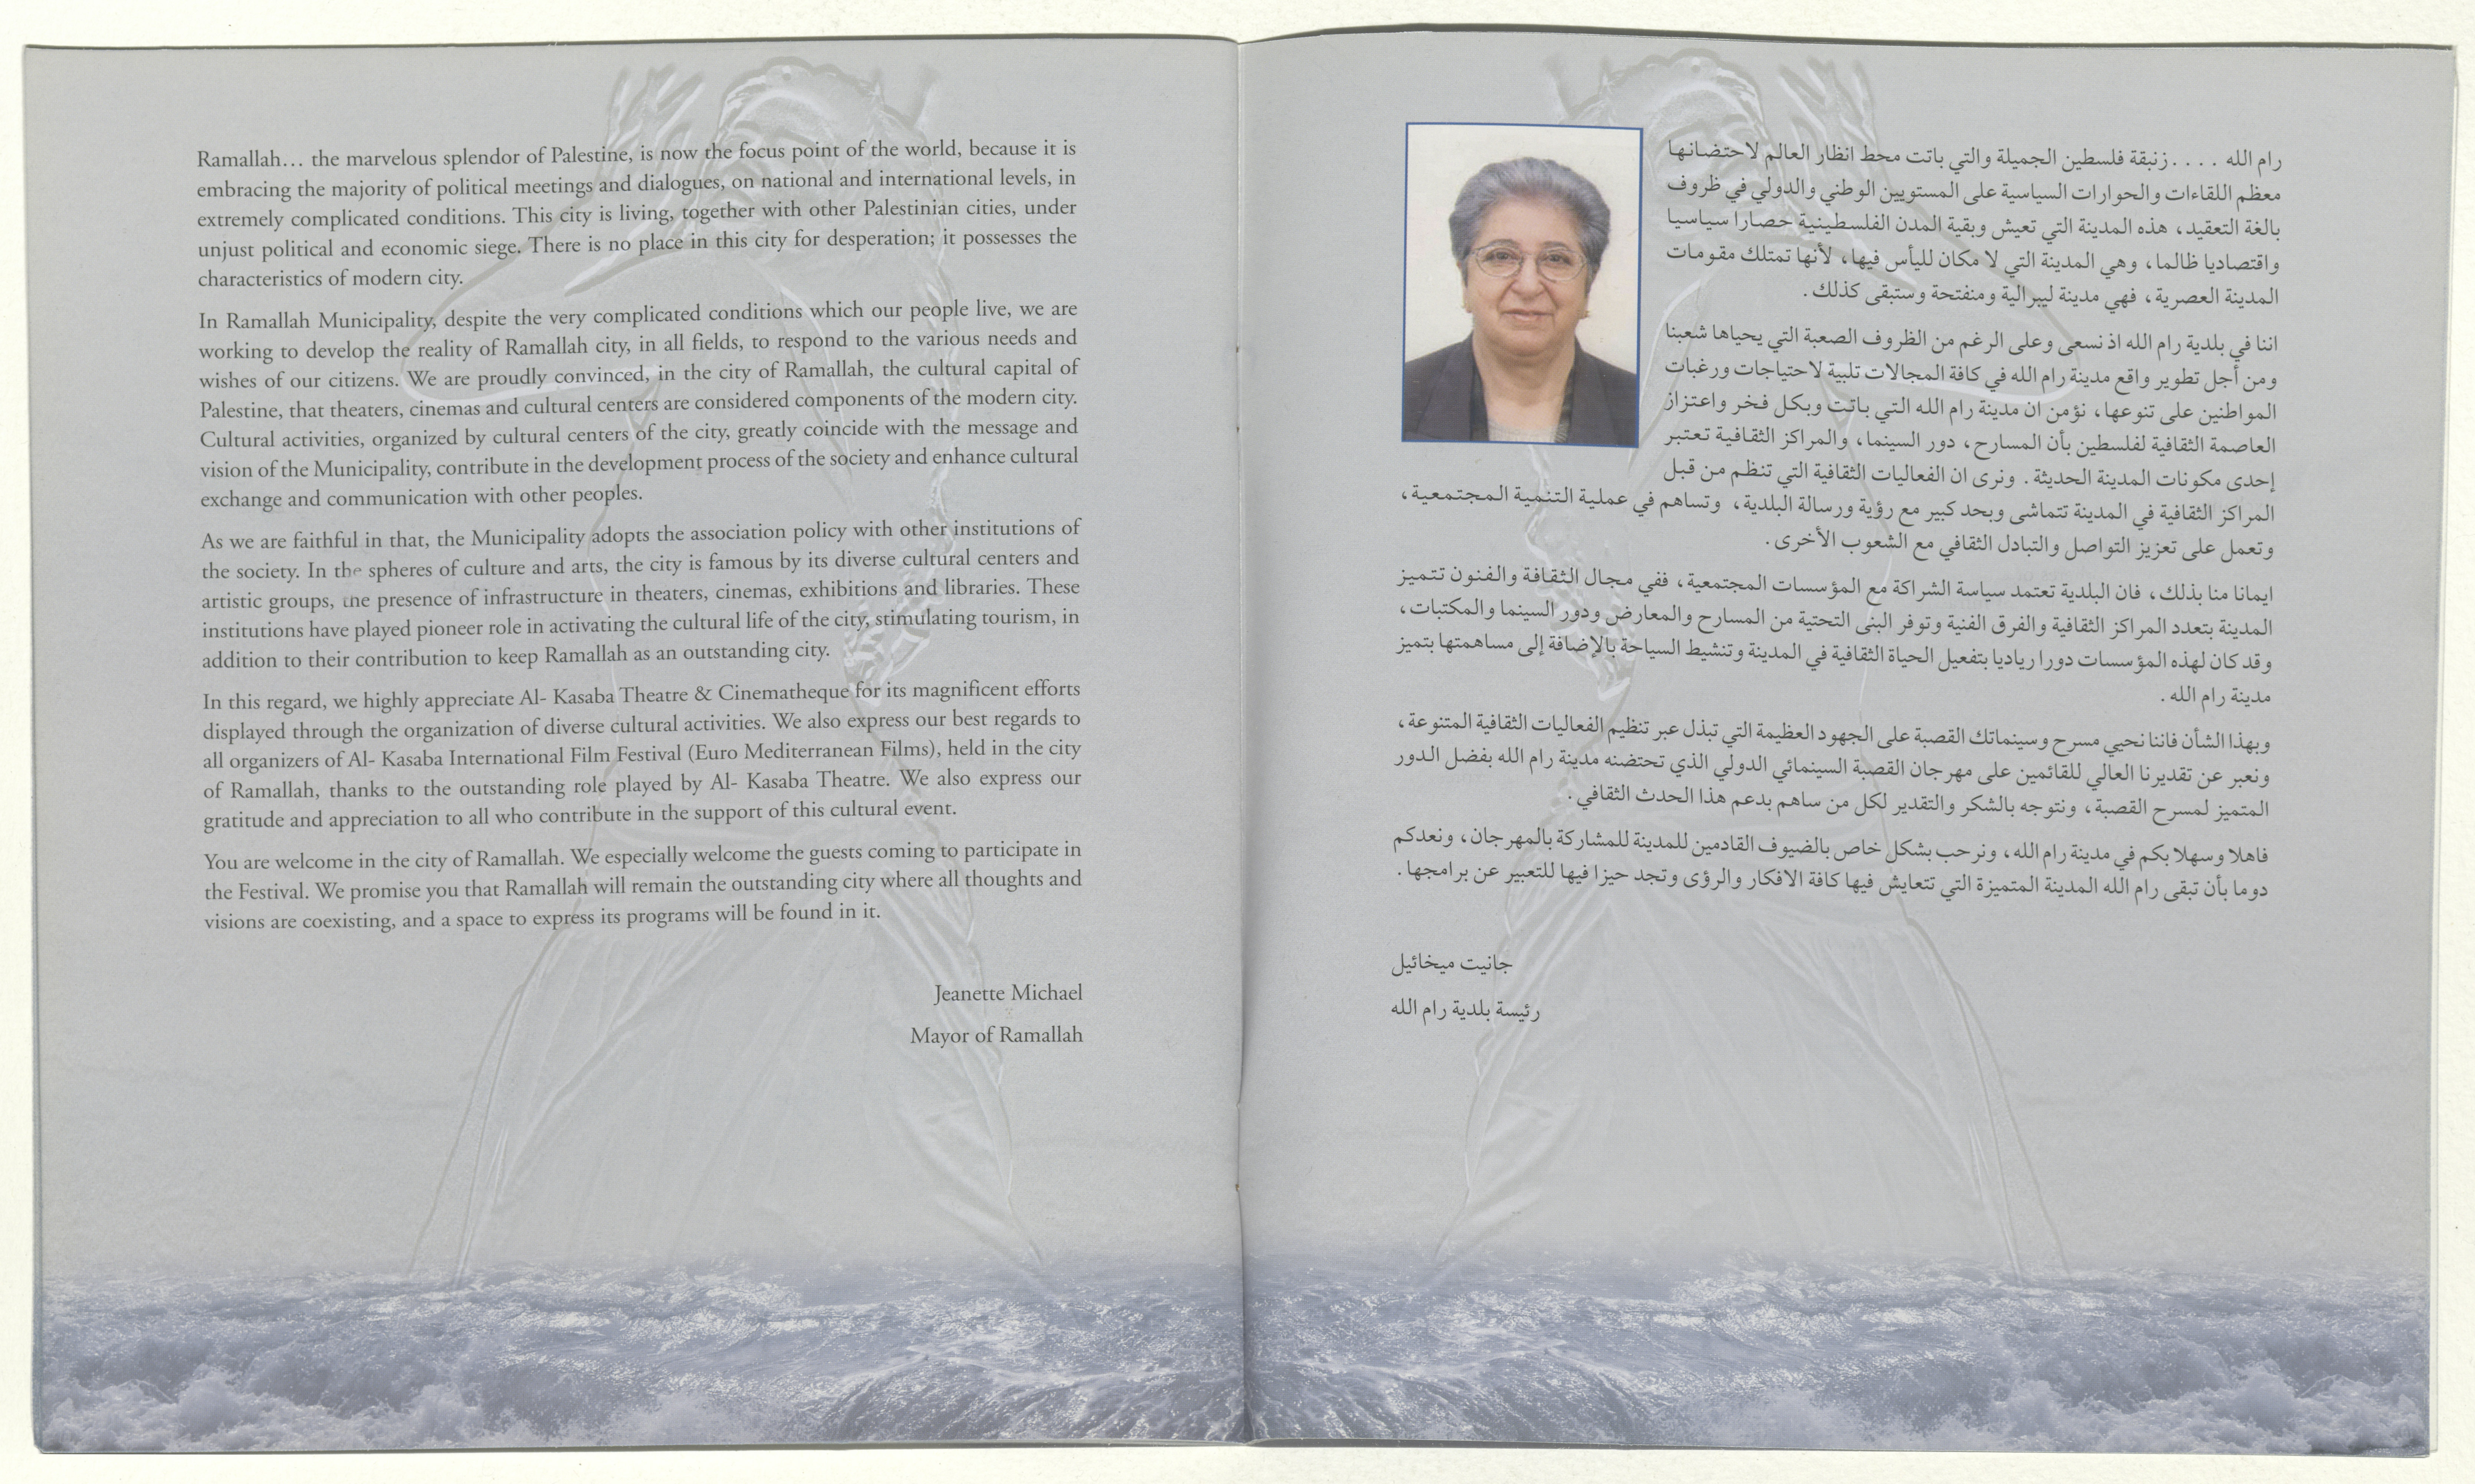 Ramallah… the marvelous splendor of Palestine, is now the focus point of the world, because it is
embracing the majority of political meetings and dialogues, on national and international levels, in
extremely complicated conditions. This city is living, together with other Palestinian cities, under
unjust political and economic siege. There is no place in this city for desperation; it possesses the
characteristics of modern city.
In Ramallah Municipality, despite the very complicated conditions which our people live, we are
working to develop the reality of Ramallah city, in all fields, to respond to the various needs and
wishes of our citizens. We are proudly convinced, in the city of Ramallah, the cultural capital of
Palestine, that theaters, cinemas and cultural centers are considered components of the modern city.
Cultural activities, organized by cultural centers of the city, greatly coincide with the message and
vision of the Municipality, contribute in the development process of the society and enhance cultural
exchange and communication with other peoples.
As we are faithful in that, the Municipality adopts the association policy with other institutions of
the society. In the spheres of culture and arts, the city is famous by its diverse cultural centers and
artistic groups, the presence of infrastructure in theaters, cinemas, exhibitions and libraries. These
institutions have played pioneer role in activating the cultural life of the city, stimulating tourism, in
addition to their contribution to keep Ramallah as an outstanding city.
In this regard, we highly appreciate Al- Kasaba Theatre & Cinematheque for its magnificent efforts
displayed through the organization of diverse cultural activities. We also express our best regards to
all organizers of Al- Kasaba International Film Festival (Euro Mediterranean Films), held in the city
of Ramallah, thanks to the outstanding role played by Al- Kasaba Theatre. We also express our
gratitude and appreciation to all who contribute in the support of this cultural event.
You are welcome in the city of Ramallah. We especially welcome the guests coming to participate in
the Festival. We promise you that Ramallah will remain the outstanding city where all thoughts and
visions are coexisting, and a space to express its programs will be found in it.
Jeanette Michael
Mayor of Ramallah
رام الله . . . . زنبقة فلسطين الجميلة والتي باتت محط انظار العالم لاحتضانها
معظم اللقاءات والحوارات السياسية على المستويين الوطني والدولي في ظروف
بالغة التعقيد، هذه المدينة التي تعيش وبقية المدن الفلسطينية حصارا سياسيا
واقتصاديا ظالما، وهي المدينة التي لا مكان لليأس فيها، لأنها تمتلك مقومات
المدينة العصرية، فهي مدينة ليبرالية ومنفتحة وستبقى كذلك.
اننا في بلدية رام الله اذ نسعى وعلى الرغم من الظروف الصعبة التي يحياها شعبنا
ومن أجل تطوير واقع مدينة رام الله في كافة المجالات تلبية لاحتياجات ورغبات
المواطنين على تنوعها، نؤمن ان مدينة رام الله التي باتت وبكل فخر واعتزاز
العاصمة الثقافية لفلسطين بأن المسارح، دور السينما، والمراكز الثقافية تعتبر
إحدى مكونات المدينة الحديثة. ونرى ان الفعاليات الثقافية التي تنظم من قبل
المراكز الثقافية في المدينة تتماشى وبحد كبير مع رؤية ورسالة البلدية، وتساهم في عملية التنمية المجتمعية،
وتعمل على تعزيز التواصل والتبادل الثقافي مع الشعوب الأخرى.
ايمانا منا بذلك، فان البلدية تعتمد سياسة الشراكة مع المؤسسات المجتمعية، ففي مجال الثقافة والفنون تتميز
المدينة بتعدد المراكز الثقافية والفرق الفنية وتوفر البنى التحتية من المسارح والمعارض ودور السينما والمكتبات،
وقد كان لهذه المؤسسات دورا رياديا بتفعيل الحياة الثقافية في المدينة وتنشيط السياحة بالإضافة إلى مساهمتها بتميز
مدينة رام الله.
وبهذا الشأن فاننا نحيي مسرح وسينماتك القصبة على الجهود العظيمة التي تبذل عبر تنظيم الفعاليات الثقافية المتنوعة،
ونعبر عن تقديرنا العالي للقائمين على مهرجان القصبة السينمائي الدولي الذي تحتضنه مدينة رام الله بفضل الدور
المتميز لمسرح القصبة، ونتوجه بالشكر والتقدير لكل من ساهم بدعم هذا الحدث الثقافي.
فاهلا وسهلا بكم في مدينة رام الله، ونرحب بشكل خاص بالضيوف القادمين للمدينة للمشاركة بالمهرجان، ونعدكم
دوما بأن تبقى رام الله المدينة المتميزة التي تتعايش فيها كافة الافكار والرؤى وتجد حيزا فيها للتعبير عن برامجها.
جانيت ميخائيل
رئيسة بلدية رام الله